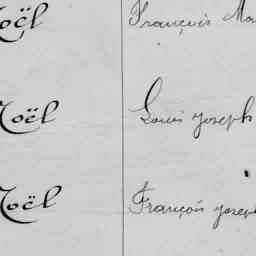 Noël François Ma
Noël Louis Joseph
Noël François Joseph